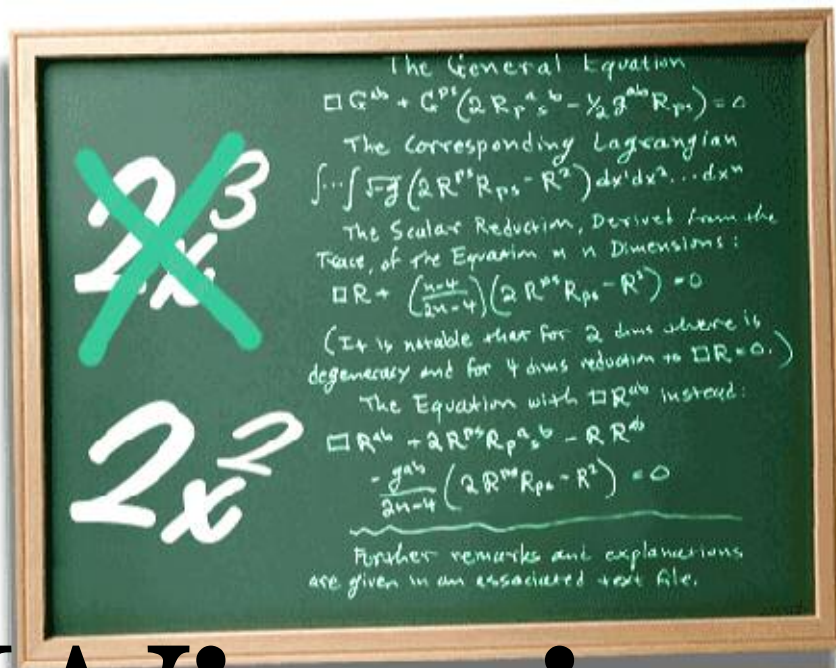 2x³
2x²
The General Equation
□G^{ab} + G^{ps}(2R_p{}^a{}_s{}^b - ½g^{ab}R_{ps}) = 0
The Corresponding Lagrangian
∫···∫√-g (2R^{ps}R_{ps} - R²) dx¹dx²...dxⁿ
The Scalar Reduction, Derived from the
Trace, of the Equation in n Dimensions:
□R + (n-4/2n-4)(2R^{ps}R_{ps} - R²) = 0
(It is notable that for 2 dims there is
degeneracy and for 4 dims reduction to □R=0.)
The Equation with □R^{ab} instead:
□R^{ab} + 2R^{ps}R_p{}^a{}_s{}^b - R R^{ab}
- g^{ab}/2n-4 (2R^{ps}R_{ps} - R²) = 0
Further remarks and explanations
are given in an associated text file.